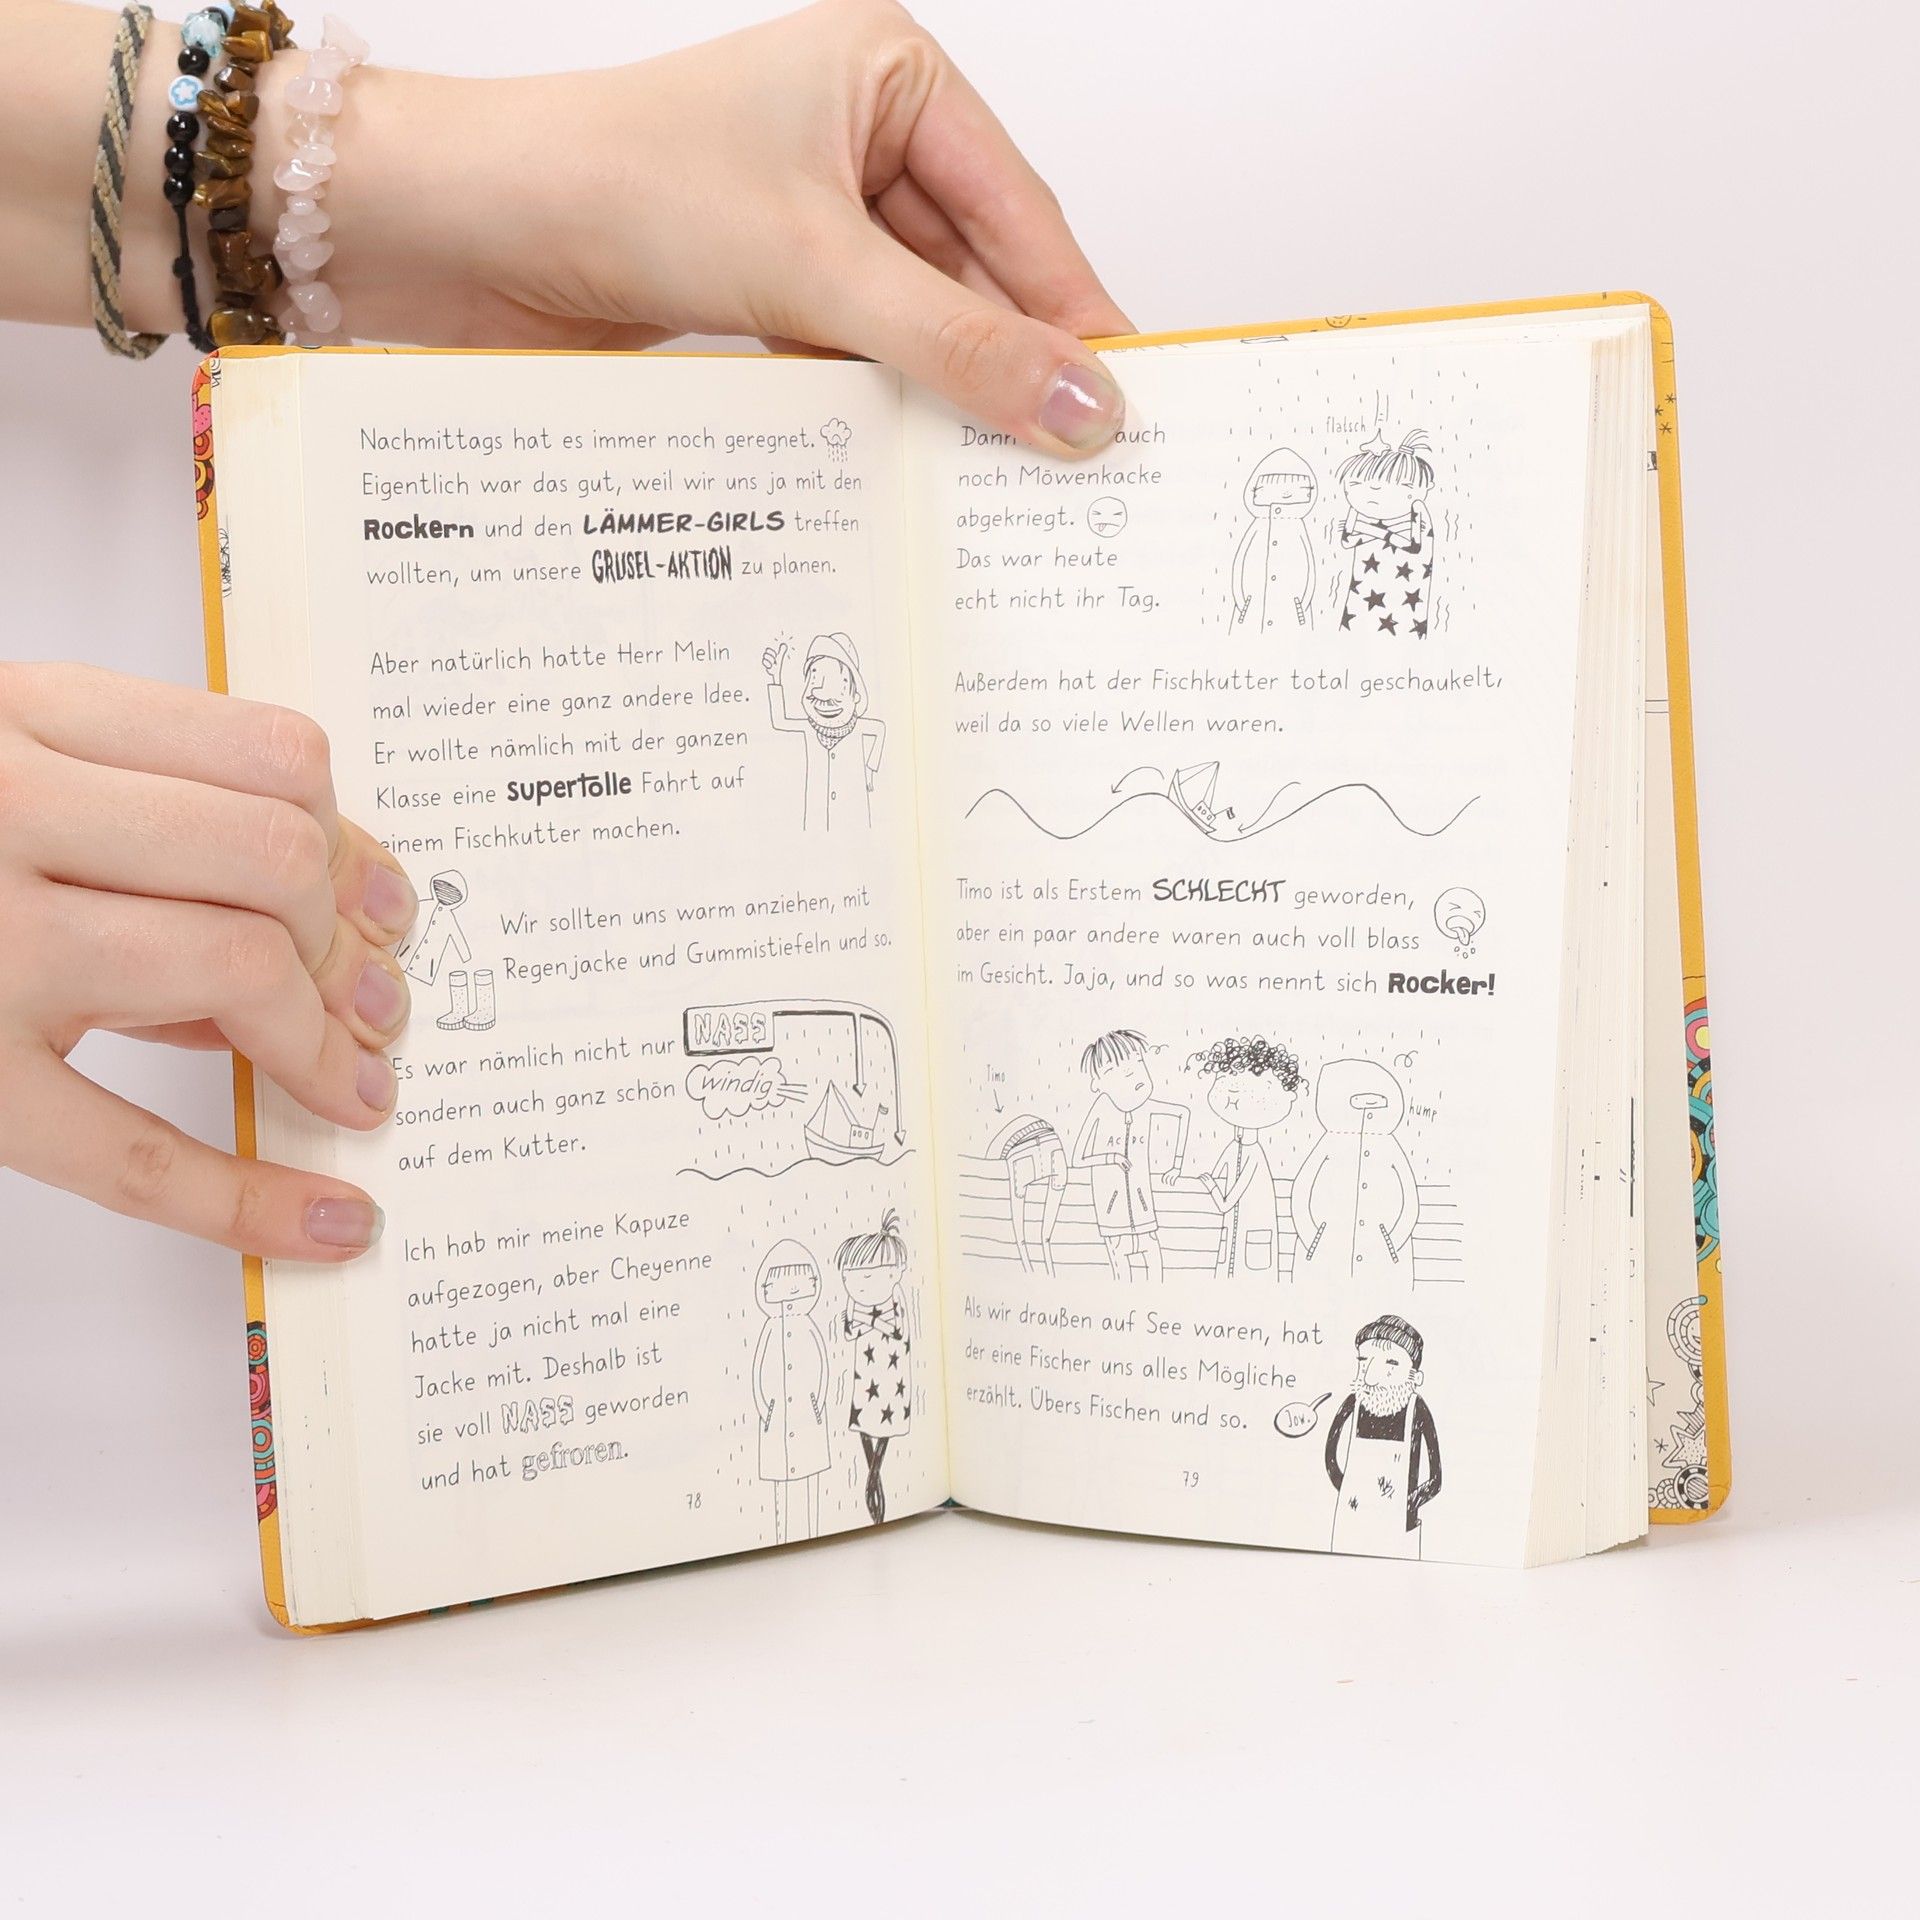 Nachmittags hat es immer noch geregnet.
Eigentlich war das gut, weil wir uns ja mit den
Rockern und den LÄMMER-GIRLS treffen
wollten, um unsere GRUSEL-AKTION zu planen.
Aber natürlich hatte Herr Melin
mal wieder eine ganz andere Idee.
Er wollte nämlich mit der ganzen
Klasse eine supertolle Fahrt auf
einem Fischkutter machen.
Wir sollten uns warm anziehen, mit
Regenjacke und Gummistiefeln und so.
Es war nämlich nicht nur
sondern auch ganz schön
auf dem Kutter.
NASS
windig
Ich hab mir meine Kapuze
aufgezogen, aber Cheyenne
hatte ja nicht mal eine
Jacke mit. Deshalb ist
sie voll NASS geworden
und hat gefroren.
78
Dann auch
noch Möwenkacke
abgekriegt.
Das war heute
echt nicht ihr Tag.
flatsch
Außerdem hat der Fischkutter total geschaukelt,
weil da so viele Wellen waren.
Timo ist als Erstem SCHLECHT geworden,
aber ein paar andere waren auch voll blass
im Gesicht. Jaja, und so was nennt sich Rocker!
Timo
AC DC
hump
Als wir draußen auf See waren, hat
der eine Fischer uns alles Mögliche
erzählt. Übers Fischen und so.
Jow.
79